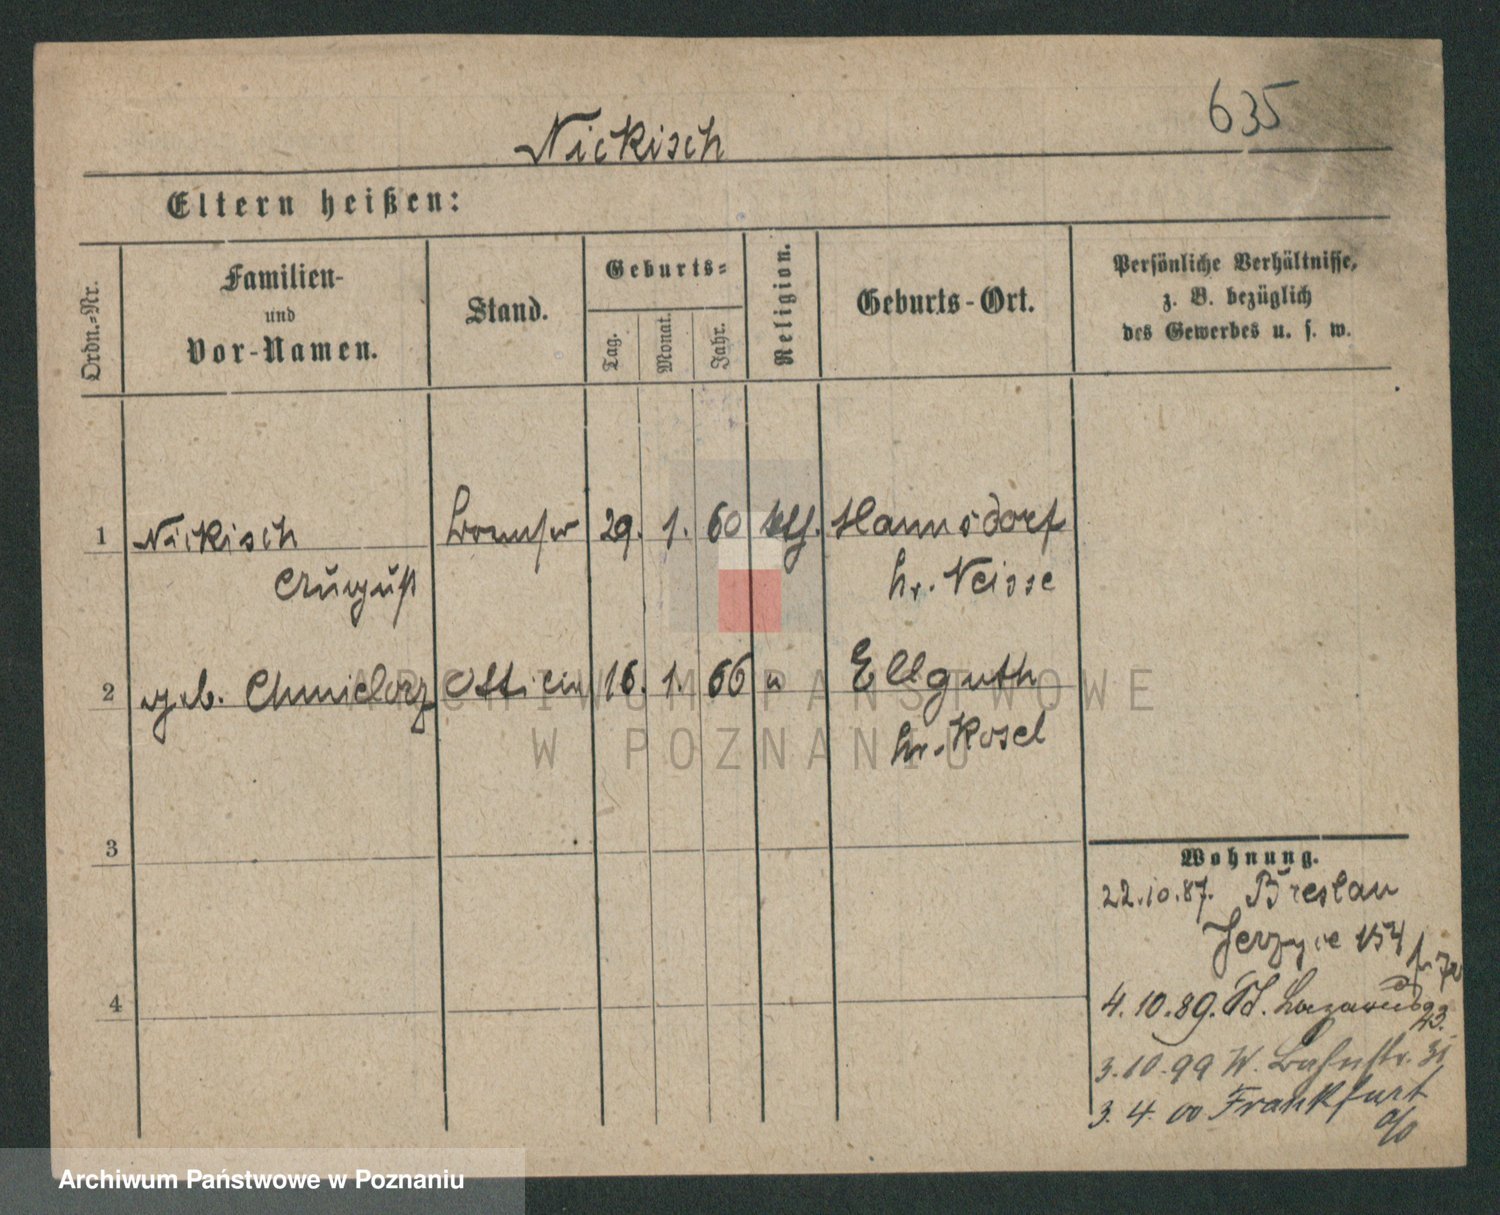 635
Nickisch
Eltern heißen:
Ordn.-Nr.
Familien-
und
Vor-Namen.
Stand.
Geburts-
Tag.
Monat.
Jahr.
Religion.
Geburts-Ort.
Persönliche Verhältnisse,
z. B. bezüglich
des Gewerbes u. s. w.
1 Nickisch 29. 1. 60 kth. Hannsdorf
August Kr. Neisse
2 geb. Chmielorz Ottilie 16. 1. 66 " Ellguth
Kr. Kosel
3
4
Wohnung.
22.10.87. Breslau
Jerzyce 154
4.10.89. St. Lazarus
43.
3.10.99 W. Bahnstr. 31
3.4.00 Frankfurt
a/o
ARCHIWUM PAŃSTWOWE
W POZNANIU
Archiwum Państwowe w Poznaniu